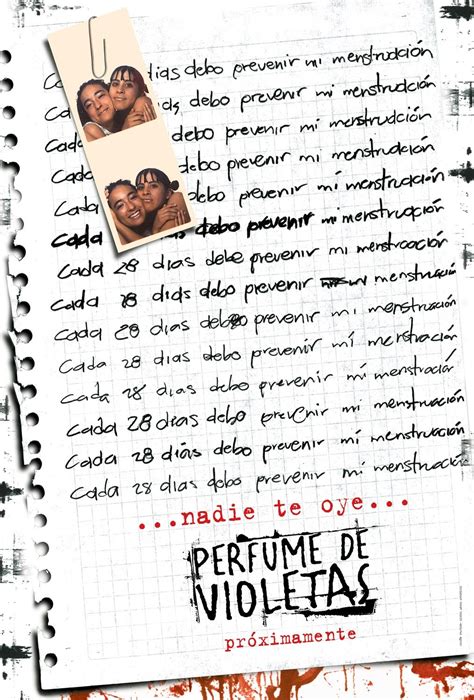 Cada dias debo prevenir mi menstruación
Cada debo prevenir mi menstruación
Cada debo prevenir mi menstruación
Cada debo prevenir mi menstruación
Cada debo prevenir mi menstruación
Cada debo prevenir mi menstruación
Cada 28 dias debe prevenir mi menstruación
Cada 28 dias debo prevenir mi menstruación
Cada 28 dias debo prevenir mi menstruación
Cada 28 dias debo prevenir mí menstruación
Cada 28 dias debo prevenir mi menstruación
Cada 28 días debo prevenir mi menstruación
Cada 28 días debo prevenir mí menstruación
Cada 28 días debo prevenir mi menstruación
...nadie te oye...
PERFUME DE
VIOLETAS
próximamente